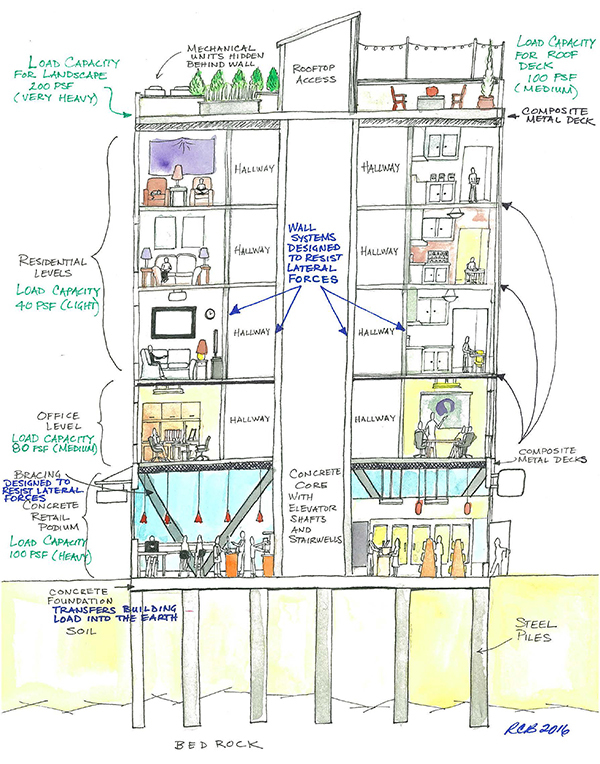 MECHANICAL
UNITS HIDDEN
BEHIND WALL
LOAD CAPACITY
FOR LANDSCAPE
200 PSF
(VERY HEAVY)
ROOFTOP
ACCESS
LOAD CAPACITY
FOR ROOF
DECK
100 PSF
(MEDIUM)
COMPOSITE
METAL DECK
HALLWAY
HALLWAY
HALLWAY
HALLWAY
WALL
SYSTEMS
DESIGNED
TO RESIST
LATERAL
FORCES
RESIDENTIAL
LEVELS
LOAD CAPACITY
40 PSF (LIGHT)
HALLWAY
HALLWAY
OFFICE
LEVEL
LOAD CAPACITY
80 PSF (MEDIUM)
HALLWAY
HALLWAY
COMPOSITE
METAL DECKS
BRACING
DESIGNED TO
RESIST LATERAL
FORCES
CONCRETE
RETAIL
PODIUM
LOAD CAPACITY
100 PSF (HEAVY)
CONCRETE
CORE
WITH
ELEVATOR
SHAFTS
AND
STAIRWELLS
CONCRETE
FOUNDATION
TRANSFERS BUILDING
LOAD INTO THE EARTH
SOIL
STEEL
PILES
RCB 2016
BEDROCK